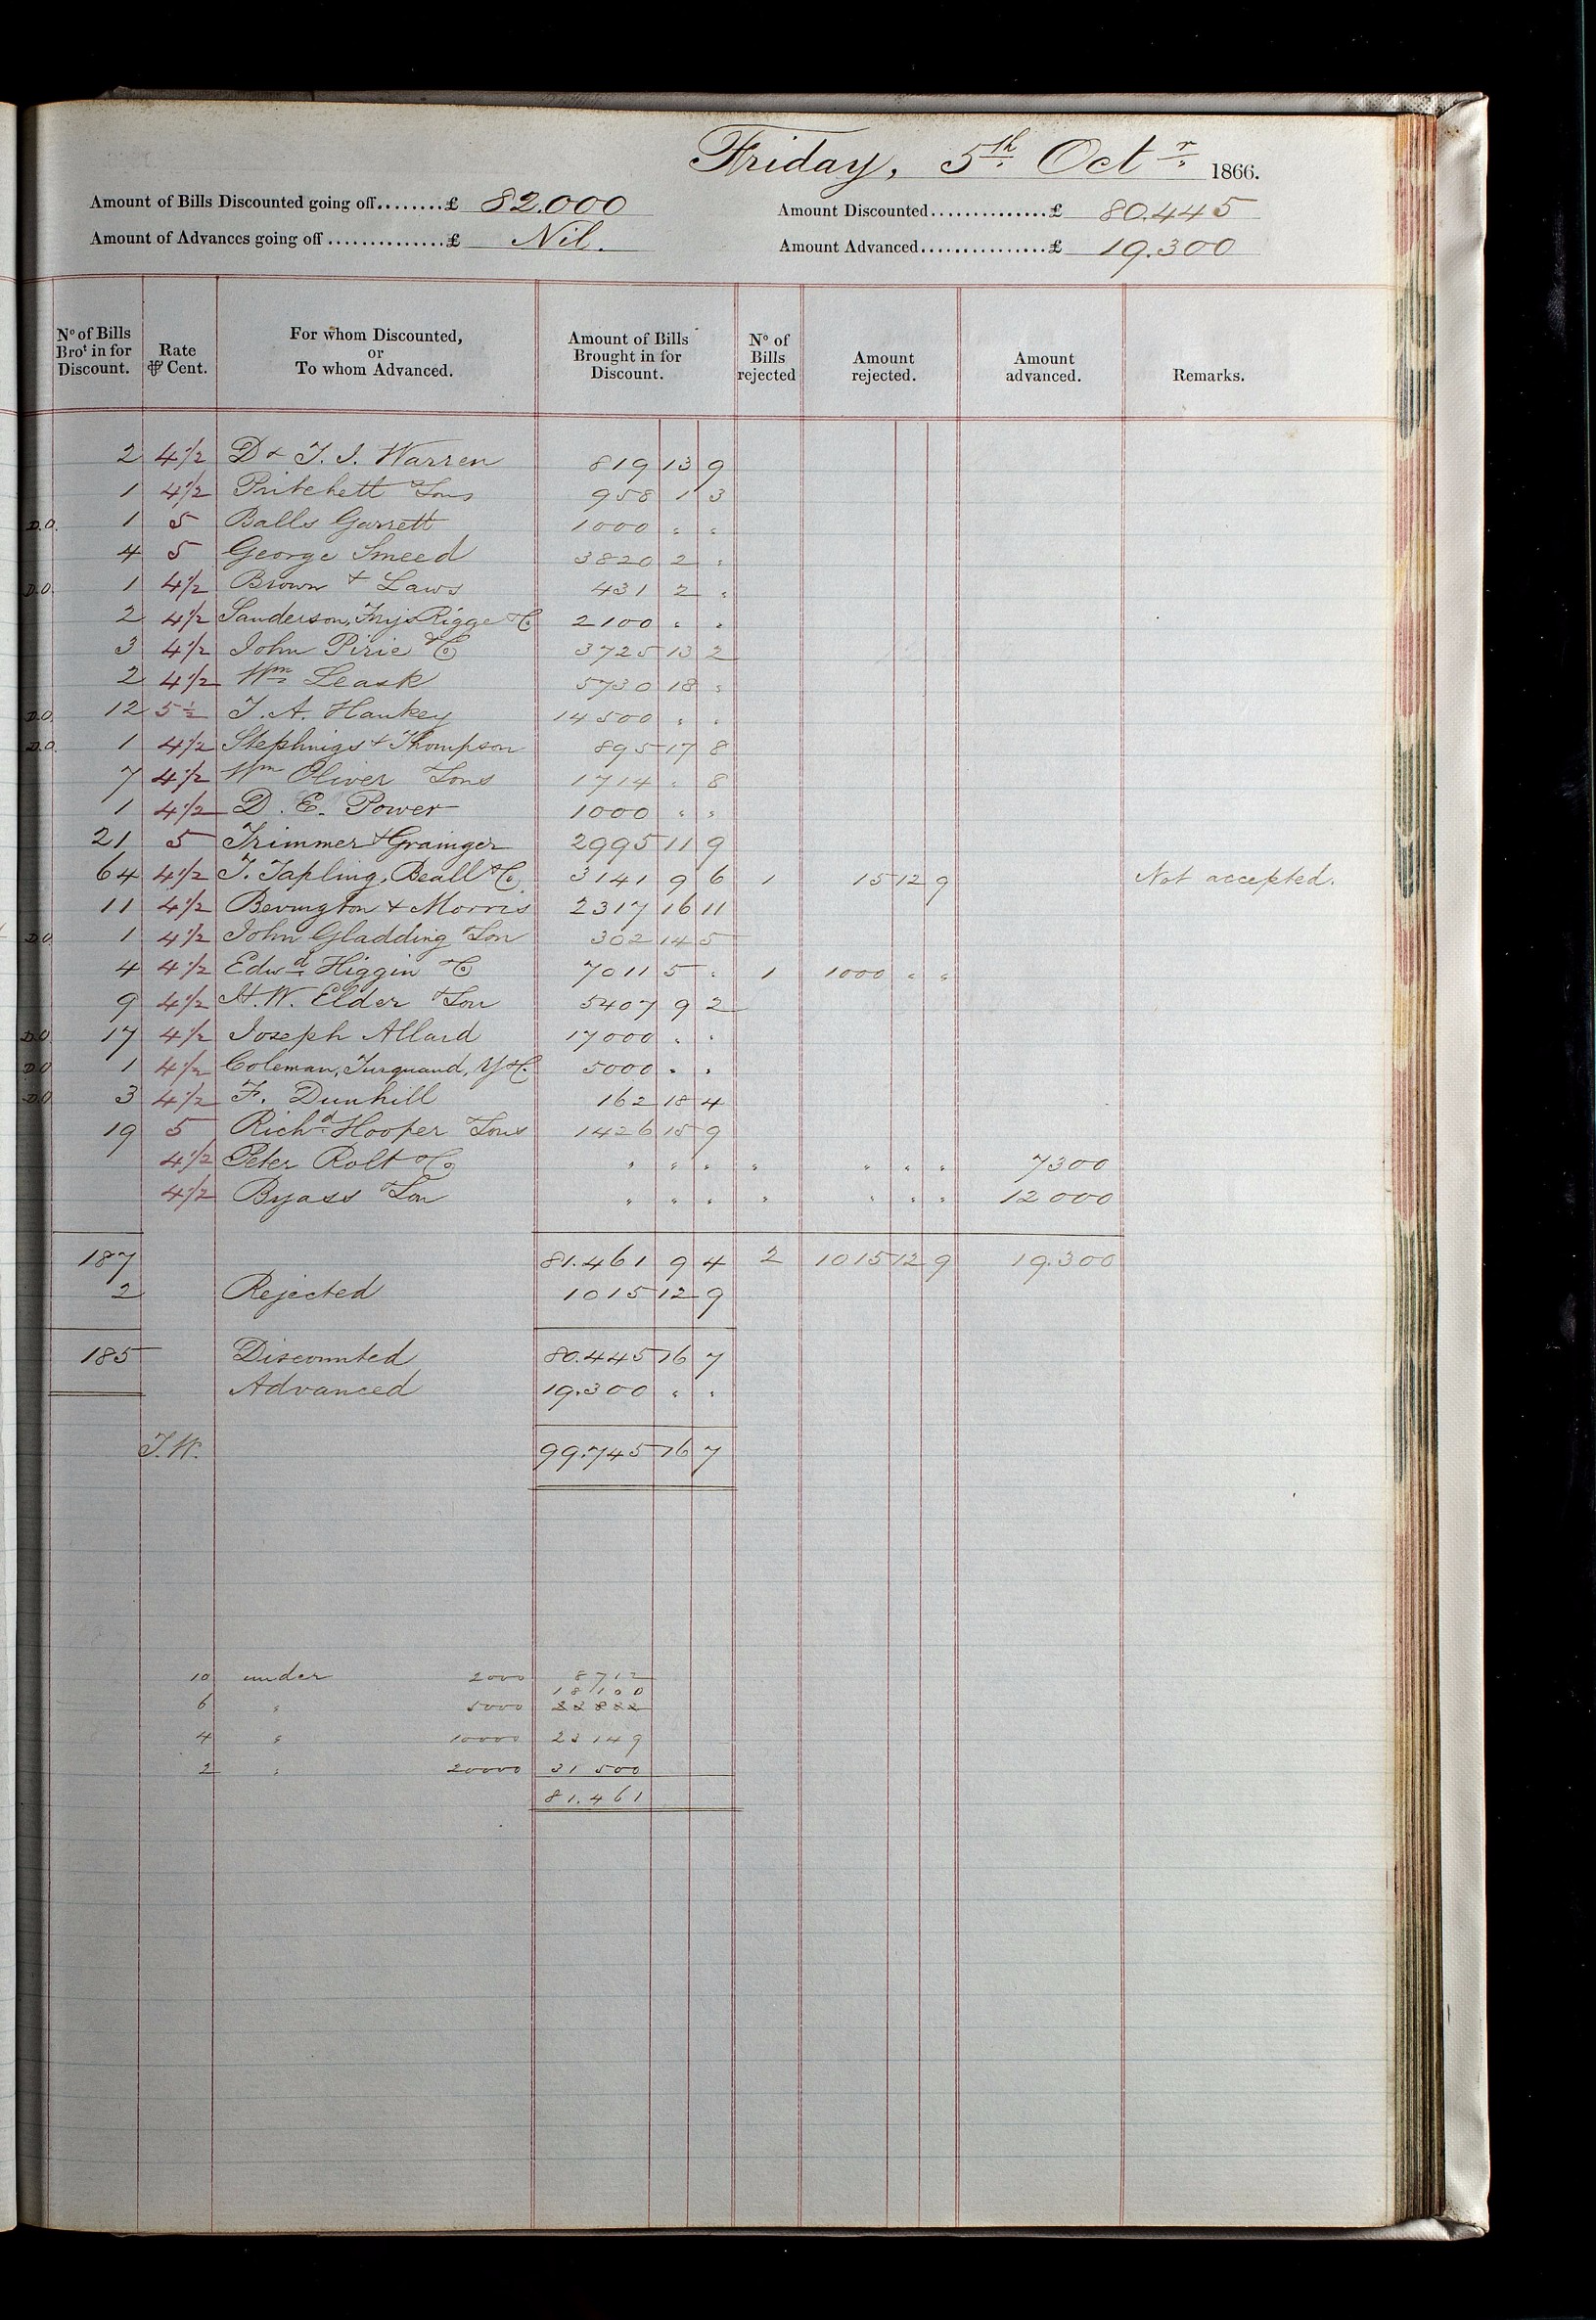 Friday, 5th Octr 1866.
Amount of Bills Discounted going off........£ 82.000
Amount Discounted..............£ 80.445
Amount of Advances going off...............£ Nil.
Amount Advanced...............£ 19.300
No of Bills Brot in for Discount. Rate ⅌ Cent. For whom Discounted, or To whom Advanced. Amount of Bills Brought in for Discount. No of Bills rejected Amount rejected. Amount advanced. Remarks.
2 4 1/2 D & T. J. Warren 819 13 9
1 4 1/2 Pritchett & Sons 958 1 3
D.O. 1 5 Balls Garrett 1000 " "
4 5 George Smeed 3820 2 "
D.O. 1 4 1/2 Brown & Laws 431 2 "
2 4 1/2 Sanderson, Frys Rigge & Co 2100 " "
3 4 1/2 John Pirie & Co 3725 13 2
2 4 1/2 Wm Leask 5730 18 "
D.O. 12 5 1/2 T. A. Hankey 14500 " "
D.O. 1 4 1/2 & Thompson 895 17 8
7 4 1/2 Wm Oliver & Sons 1714 " 8
1 4 1/2 D. E. Power 1000 " "
21 5 Trimmer & Grainger 2995 11 9
64 4 1/2 T. Tapling, Beall & Co. 3141 9 6 1 15 12 9 Not accepted.
11 4 1/2 Bevington & Morris 2317 16 11
D.O. 1 4 1/2 John Gladding & Son 302 14 5
4 4 1/2 Edwd Higgin & Co 7011 5 " 1 1000 " "
9 4 1/2 H. W. Elder & Son 5407 9 2
D.O. 17 4 1/2 Joseph Allard 17000 " "
D.O. 1 4 1/2 Coleman, Turquand, Y & Co. 5000 " "
D.O. 3 4 1/2 F. Dunhill 162 18 4
19 5 Richd Hooper & Sons 1426 15 9
4 1/2 Peter Rolt & Co " " " " " " " 7300
4 1/2 Byass & Son " " " " " " " 12000
187 81.461 9 4 2 1015 12 9 19.300
2 Rejected 1015 12 9
185 Discounted 80.445 16 7
Advanced 19.300 " "
T.W. 99.745 16 7
10 under 2000 8712
18100
6 " 5000 22822
4 " 10000 23149
2 " 20000 31500
81.461